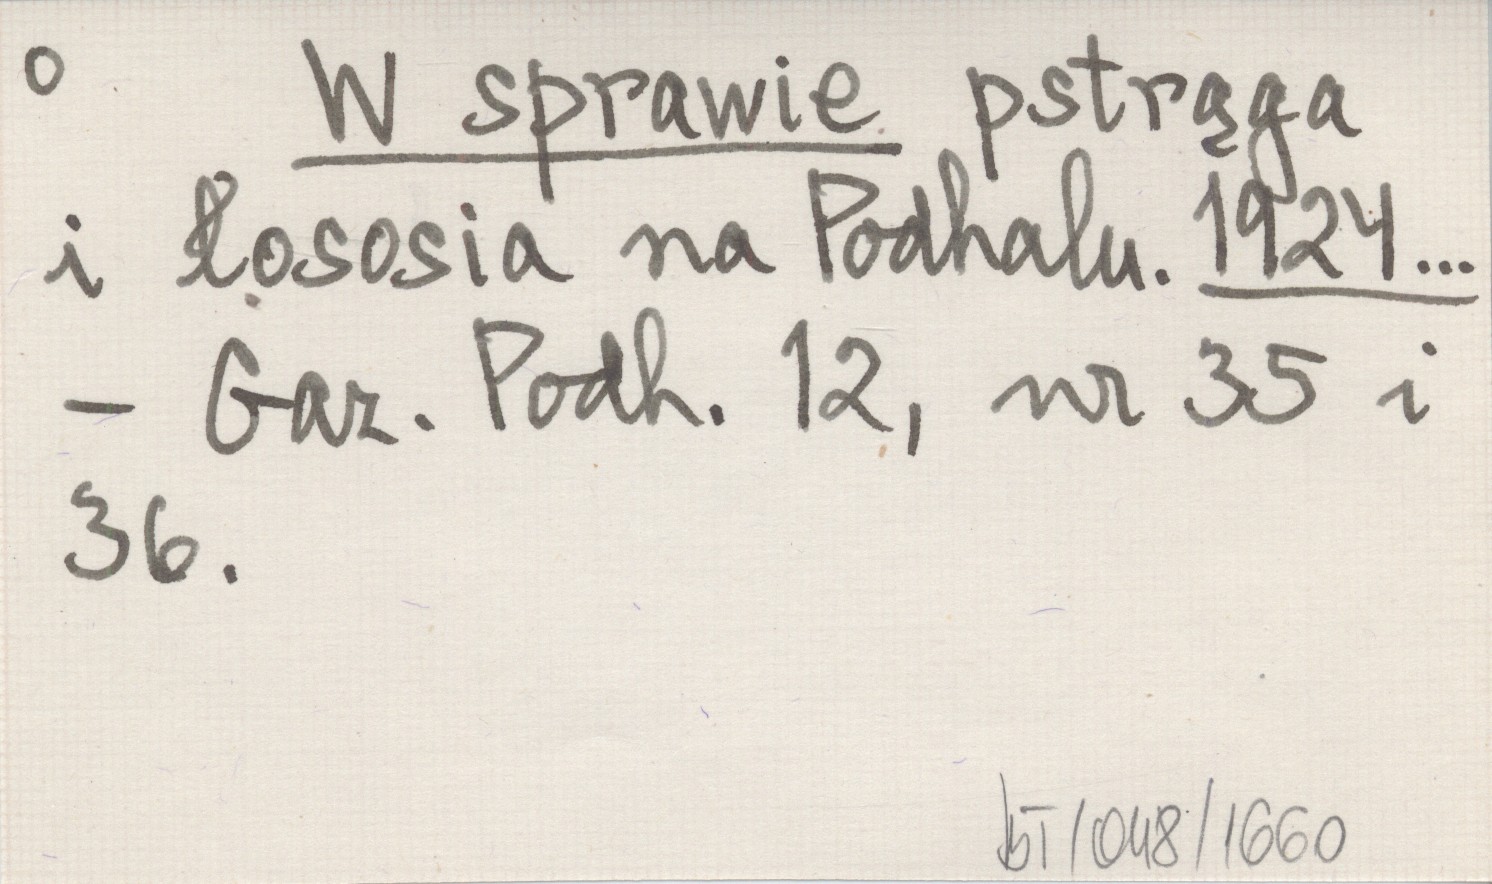 o W sprawie pstrąga
i łososia na Podhalu. 1924...
- Gaz. Podh. 12, nr 35 i
36.
/048/1660